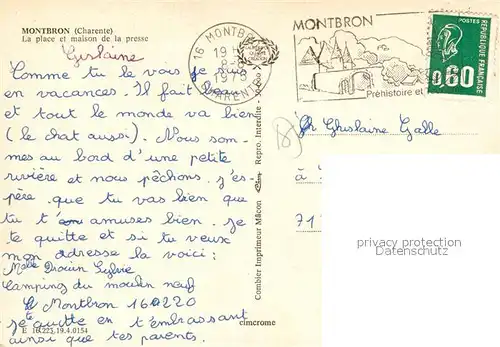 MONTBRON (Charente)
La place et maison de la presse
Guslaine
Comme tu le vois je suis
en vacances. Il fait beau
et tout le monde va bien
(le chat aussi). Nous som-
mes au bord d'une petite
rivière et nous pêchons. J'es-
père que tu vas bien que
tu t'amuses bien. Je
te quitte et si tu veux
mon adresse la voici :
Melle Drouin Sylvie
Camping du moulin neuf
Montbron 160220
je te quitte en t'embrassant
ainsi que tes parents.
E 16.223.19.4.0154
cimcrome
Combier Imprimeur Mâcon Cim Repro. Interdite
16 MONTBRON
19 H
8-8
CHARENTE
MONTBRON
Préhistoire et
POSTES
REPUBLIQUE FRANÇAISE
0,60
Ghuslaine Galle
à
71
privacy protection
Datenschutz